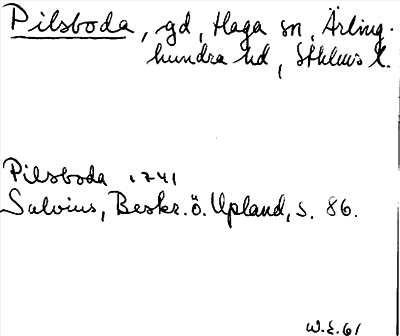 Pilsboda, gd, Haga sn, Ärling-
hundra hd, Sthlms l.
Pilsboda 1741
Salvius, Beskr. ö. Upland, s. 86.
W.E. 61